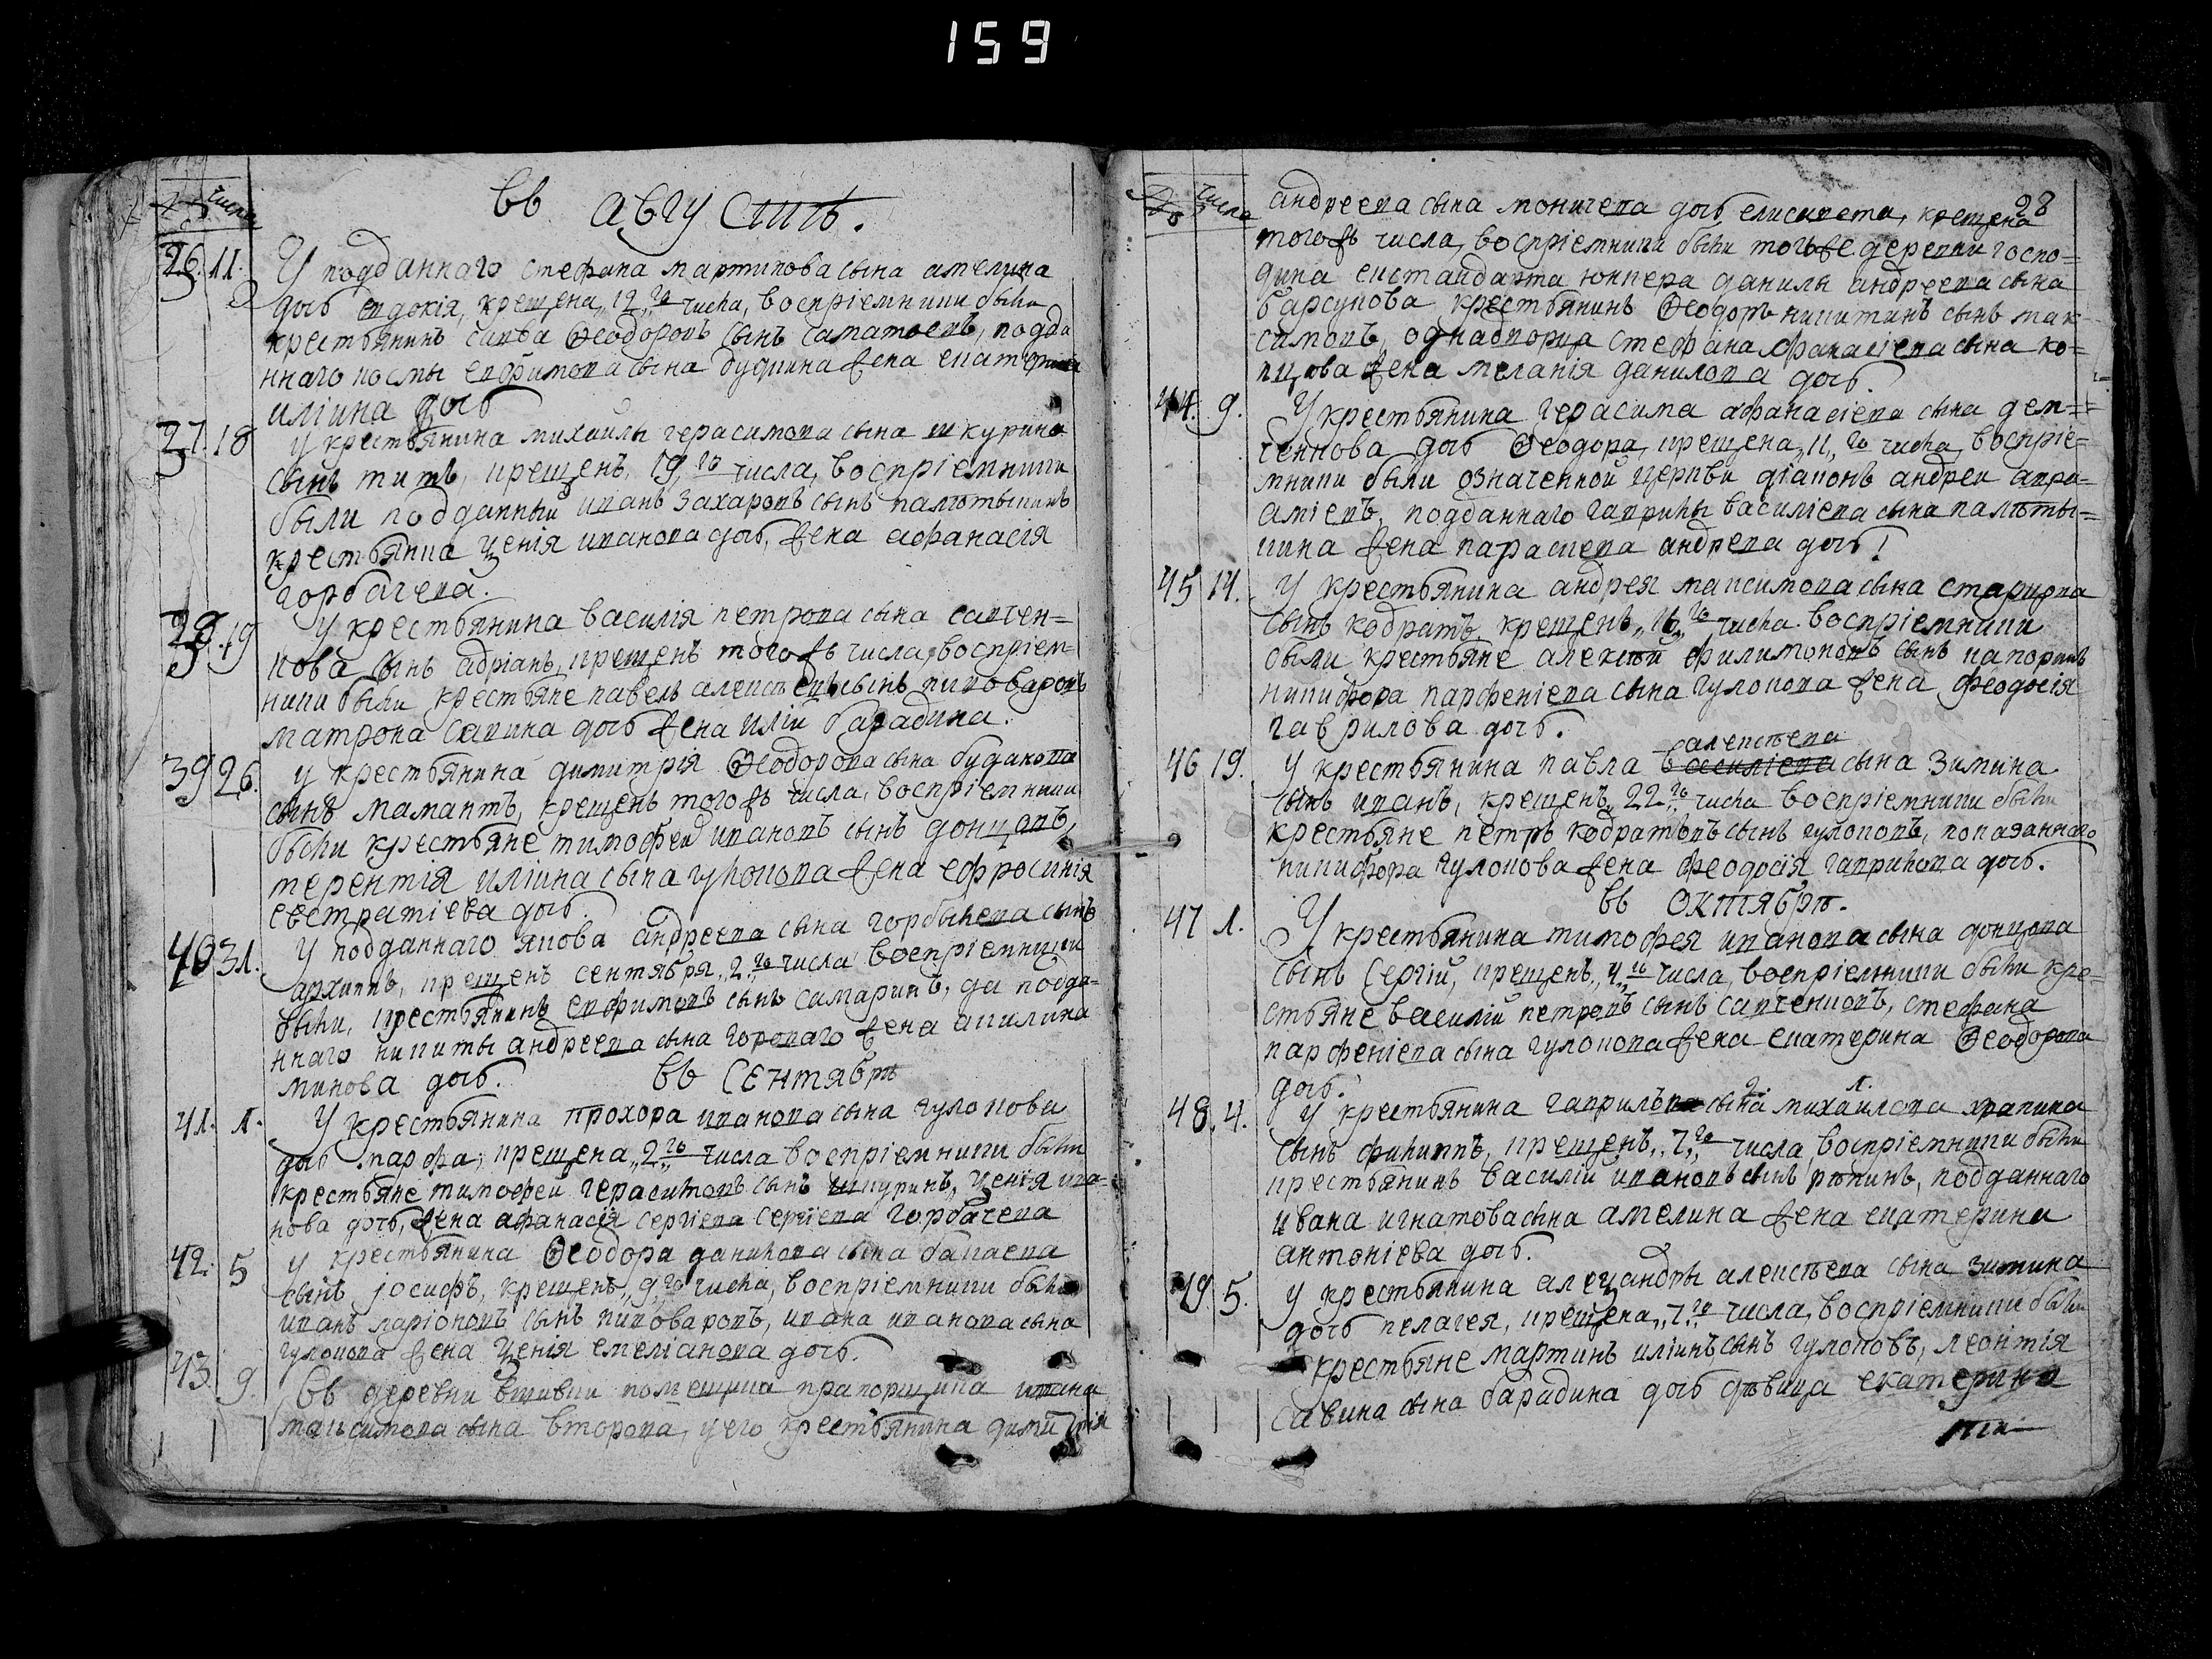 159
Числа
въ августѣ.
26. 11. У подданнаго стефана мартинова сына амелина
дочь евдокія, крещена, 12,го числа, воспріемники были
крестьянинъ савва Ѳеодоровъ сынъ саматоевъ, подда
ннаго космы евфимова сына жена екатерина
иліина дочь
37. 18 У крестьянина михаилы герасимова сына шкурина
сынъ титъ, крещенъ, 19,го числа, воспріемники
были подданный иванъ захаровъ сынъ калѣтынинъ
крестьянка Ѯенія иванова дочь, жена афанасія
горбачева.
39. 19 У крестьянина василія петрова сына савчен=
кова сынъ адріанъ, крещенъ тогожъ числа, воспріем=
ники были крестьяне павелъ алексѣевъ сынъ пивоваровъ
матрона савина дочь жена иліи барадина.
39 26. У крестьянина димитрія Ѳеодорова сына будакова
сынъ мамантъ, крещенъ тогожъ числа, воспріемники
были крестьяне тимофей ивановъ сынъ донцовъ,
терентія иліина сына гулокова жена ефросинія
евстратіева дочь.
40 31. У подданнаго якова андреева сына горбылева сынъ
архиппъ, крещенъ сентября, 2,го числа воспріемники
были, крестьянинъ евфимовъ сынъ самаринъ, да подда=
ннаго никиты андреева сына гороваго жена акилина
минова дочь.
въ Сентябрѣ
41. 1. У крестьянина прохора иванова сына гулокова
дочь марфа, крещена, 2,го числа воспріемники были
крестьяне тимофей герасимовъ сынъ шкуринъ, Ѯенія ива=
нова дочь, жена афанасія сергіева сергіева горбачева
42. 5 У крестьянина Ѳеодора данилова сына бакаева
сынъ іосифъ, крещенъ, 9,го числа, воспріемники были
иванъ ларіоновъ сынъ пивоваровъ, ивана иванова сына
гулокова жена Ѯенія емеліанова дочь.
43. 9. Въ деревни помещика прапорщика ивана
максимова сына второва, у его крестьянина димитрія
28
Числа
андреева сына моничева дочь елисавета, крещена
тогожъ числа, воспріемники были тогоже деревни госпо=
дина енстандарта юнкера данилы андреева сына
барсукова крестьянинъ Ѳеодоръ никитинъ сынъ мак=
симовъ, однадворца стефана афанасіева сына ко=
пцова жена меланія данилова дочь.
44. 9. У крестьянина герасима афанасіева сына дем=
ченкова дочь Ѳеодора, крещена, 11,го числа, воспріе=
мники были означенной церкви діаконъ андреи авра=
аміевъ, подданнаго гаврилы василіева сына калѣты=
нина жена параскева андреева дочь!
45 14. У крестьянина андрея максимова сына старикова
сынъ кодратъ, крещенъ, 16,го числа. воспріемники
были крестьяне алексей филимоновъ сынъ
никифора парфеніева сына гулокова жена феодосія
гаврилова дочь.
алексѣева
46 19. У крестьянина павла василіева сына зимина
сынъ иванъ, крещенъ, 22,го числа воспріемники были
крестьяне петръ кодратовъ сынъ гулоковъ, показаннаго
никифора гулокова жена феодосія гаврилова дочь.
въ октябрѣ.
47 1. У крестьянина тимофея иванова сына донцова
сынъ Сергій, крещенъ, 4,го числа, воспріемники были кре=
стьяне василій петровъ сынъ савченковъ, стефана
парфеніева сына гулокова жена екатерина Ѳеодорова
дочь.
48. 4. У крестьянина гаврилы сына 2. михаилова 1. храпина
сынъ филиппъ, крещенъ, 7,го числа, воспріемники были
крестьянинъ василій ивановъ сынъ рѣпинъ, подданнаго
ивана игнатова сына амелина жена екатерина
антоніева дочь.
49. 5. У крестьянина алеѯандры алексѣева сына зимина
дочь пелагея, крещена, 7,го числа, воспріемники были
крестьяне мартинъ иліинъ сынъ гулоковъ, леонтія
савина сына барадина дочь дѣвица екатерина